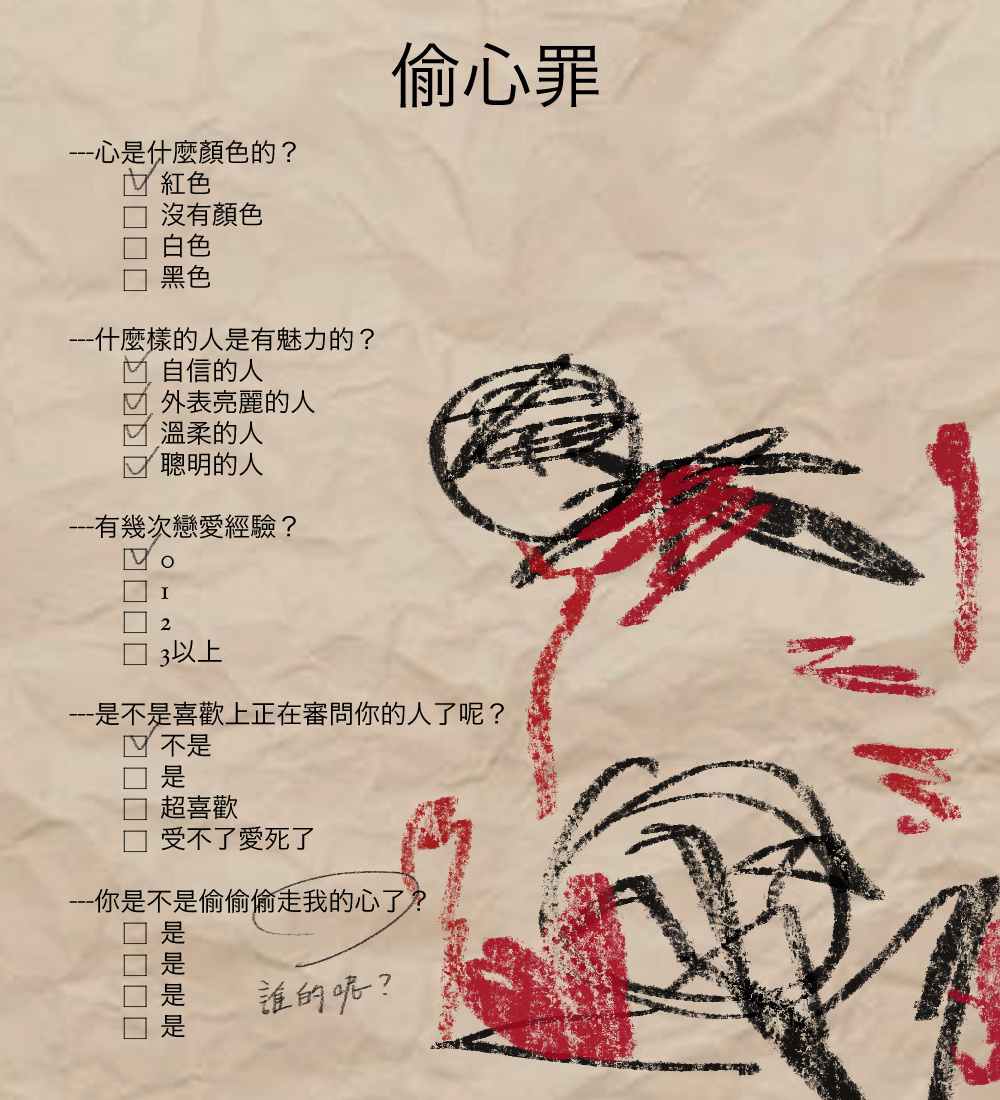 偷心罪
---心是什麼顏色的？
紅色
沒有顏色
白色
黑色
---什麼樣的人是有魅力的？
自信的人
外表亮麗的人
溫柔的人
聰明的人
---有幾次戀愛經驗？
0
1
2
3以上
---是不是喜歡上正在審問你的人了呢？
不是
是
超喜歡
受不了愛死了
---你是不是偷偷偷走我的心了？
是
是
是
是
誰的呢？